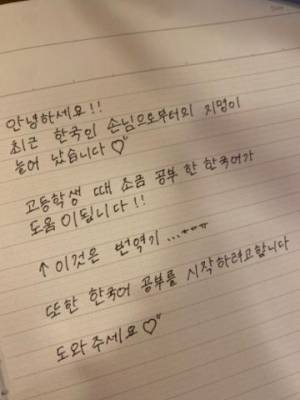 안녕하세요!!
최근 한국의 손님으로부터의 지명이
늘어 났습니다♡
고등학생 때 조금 공부 한 한국어가
도움 이됩니다!!
↑이것은 번역기...
또한 한국어 공부를 시작하려고합니다
도와주세요♡